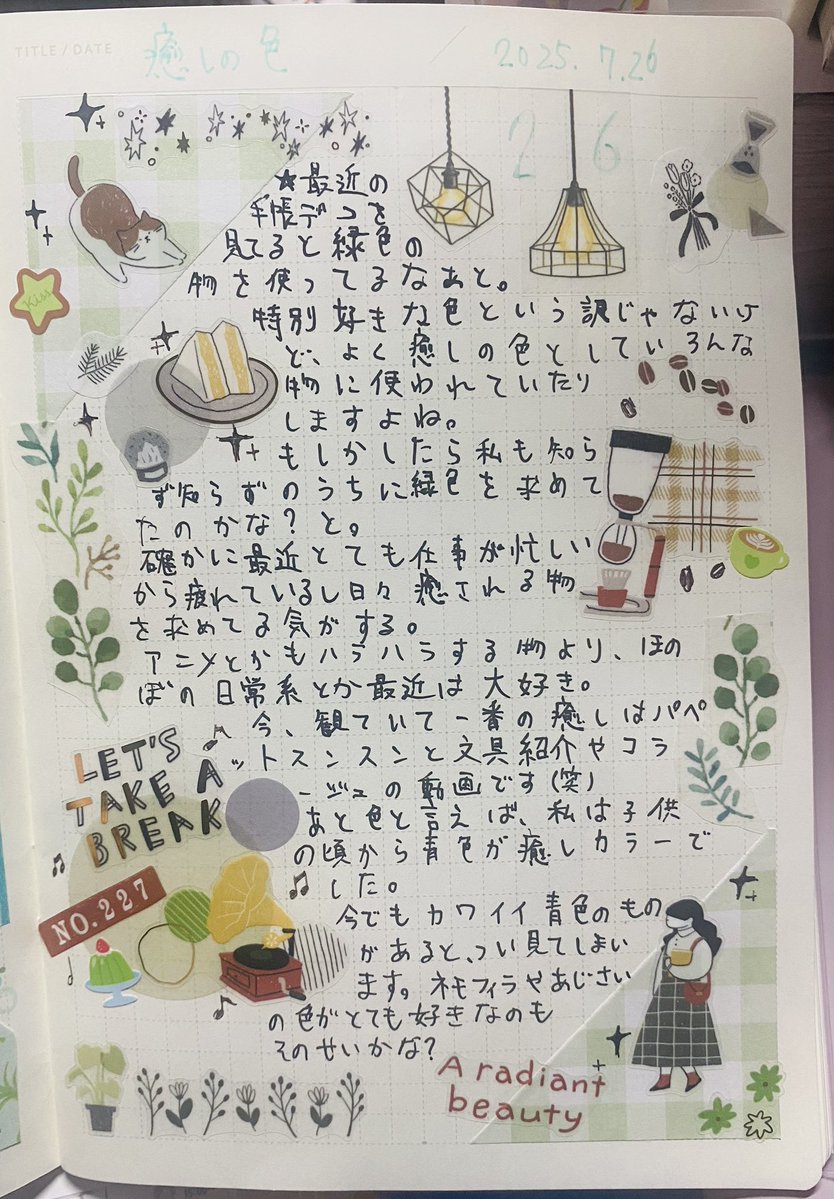 TITLE/DATE
癒しの色 / 2025.7.26
26
☆最近の
手帳デコを
見てると緑色の
物を使ってるなぁと。
特別好きな色という訳じゃないけ
ど、よく癒しの色としていろんな
物に使われていたり
しますよね。
もしかしたら私も知ら
ず知らずのうちに緑色を求めて
たのかな?と。
確かに最近とても仕事が忙しい
から疲れているし日々癒される物
を求めてる気がする。
アニメとかもハラハラする物より、ほの
ぼの日常系とか最近は大好き。
今、観ていて一番の癒しはパペ
ットスンスンと文具紹介やコラ
ージュの動画です(笑)
あと色と言えば、私は子供
の頃から青色が癒しカラーで
した。
今でもカワイイ青色のもの
があると、つい見てしまい
ます。ネモフィラやあじさい
の色がとても好きなのも
そのせいかな?
Kiss
LET'S
TAKE A
BREAK
NO.227
A radiant
beauty